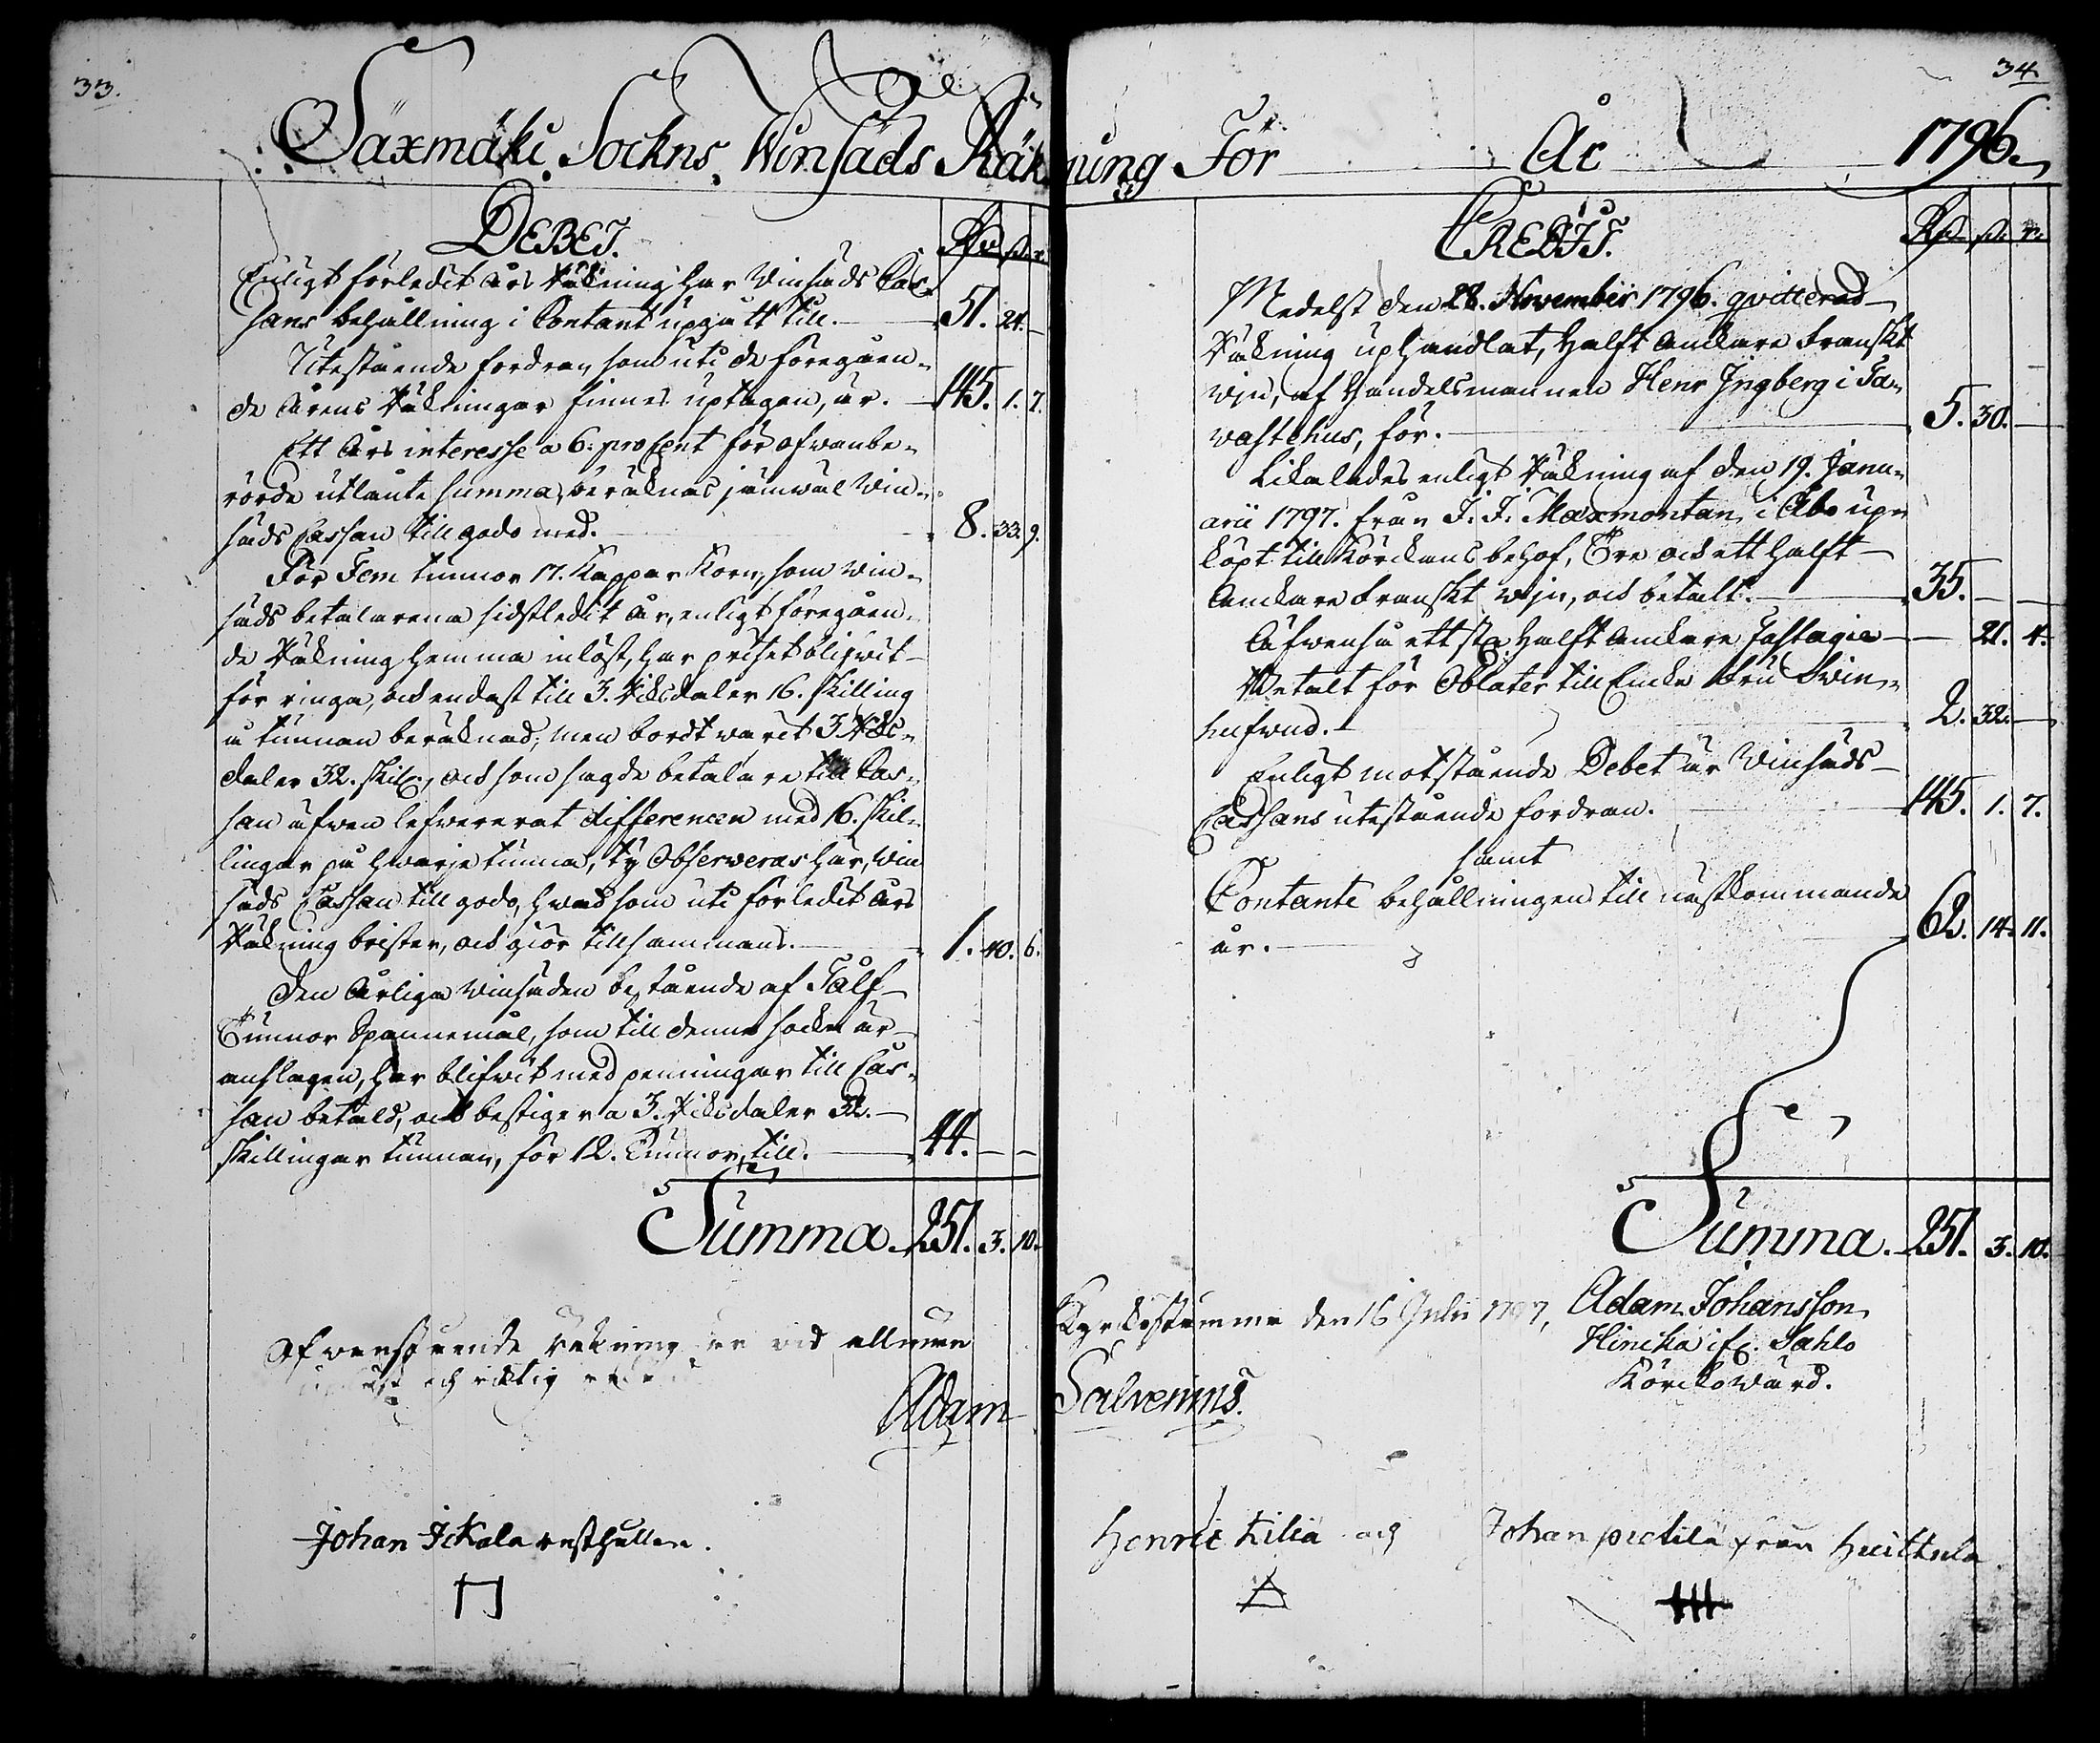 33.
Säxmäki Sockns Winsäds Räkning För År 1796.
DEBET.
Rd. sk. r.
Enligt förledit års Räkning har Winsäds Cas-
sans behållning i Contant upgått till. 51. 24. —
Utestående fordran, som uti de föregåen-
de Årens Räkningar finnes uptagen, är. 145. 1. 7.
Ett Års interesse a 6. proCent för ofwanbe-
rörde utlånte summa, beräknas jämwäl Win-
säds Cassan till godo med. 8. 33. 9.
För Fem tunnor 17. Kappar Korn, som win-
säds betalarena sidstledit År, enligt föregåen-
de Räkning hemma inlöst, har priset blifwit
för ringa, och endast till 3. Riksdaler 16. skilling
a tunnan beräknad, men bordt warit 3 Riks-
daler 32. skil., och som sagde betalare till Cas-
san äfwen lefwererat differencen med 16. skil-
lingar på hwarje tunna, ty Observeras här, Win
säds Cassan till godo, hwad som uti förledit Års
Räkning brister, och giör tillsammans. 1. 40. 6.
Den Årliga winsäden bestående af Tålf
Tunnor Spannemål, som till denna sockn är
anslagen, har blifwit med penningar till Cas-
san betald, och bestiger a 3. Riksdaler 32.
skillingar tunnan, för 12. Tunnor, till. 44. — —
Summa. 251. 3. 10.
34.
CREDIT.
Rd. sk. r.
Medelst den 28. November 1796. qvitterad
Räkning uphandlat, halft Anckare Franskt
wijn, af Handelsmannen Henr Ingberg i Ta-
wastehus, för. 5. 30. —
Likaledes enligt Räkning af den 19. Janu-
arii 1797. från J. J. Maxmontan i Åbo up-
köpt till Körckans behof, Tre och ett halft
Anckare Franskt wijn, och betalt. 35. — —
Äfwenså ett st. halft Anckare Fastagie — 21. 4.
Betalt för Oblater till Encke Fru Swin-
hufwud. 2. 32. —
Enligt motstående Debet är Winsäds
Cassans utestående fordran. 145. 1. 7.
samt
Contante behållningen till nästkommande
år. 62. 14. 11.
Summa. 251. 3. 10.
Adam Johansson
Hincka ifr. Sahlo
Körckowärd.
Ofwanstående Rekning är wid allmän Kyrckostämma den 16 Julii 1797,
och riktig
Adam Salvenius.
Johan Ickala rusthållare. Henric Kilia och Johan pietilä från Huittula